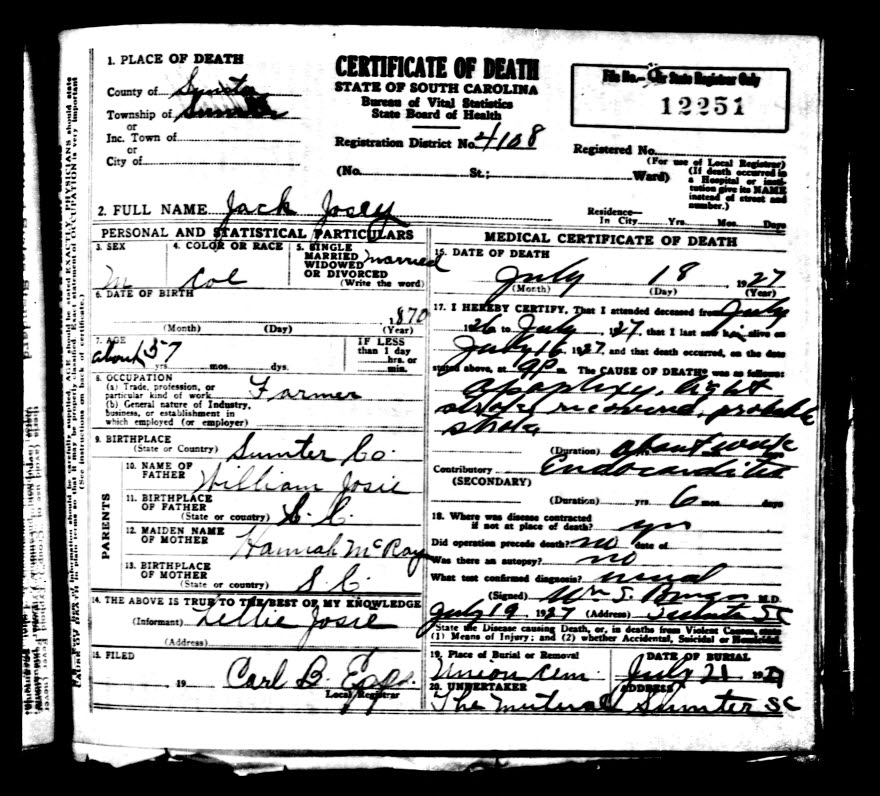 1. PLACE OF DEATH
County of Sumter
Township of Sumter
or
Inc. Town of
or
City of
CERTIFICATE OF DEATH
STATE OF SOUTH CAROLINA
Bureau of Vital Statistics
State Board of Health
Registration District No. 4108
(No. St.; Ward)
File No.—For State Registrar Only
12251
Registered No.
(For use of Local Registrar)
(If death occurred in
a Hospital or insti-
tution give its NAME
instead of street and
number.)
2. FULL NAME Jack Josey
Residence—
In City Yrs. Mos. Days
PERSONAL AND STATISTICAL PARTICULARS
3. SEX
M
4. COLOR OR RACE
Col
5. SINGLE
MARRIED
WIDOWED
OR DIVORCED
(Write the word)
married
6. DATE OF BIRTH
1870
(Month) (Day) (Year)
7. AGE
about 57
yrs. mos. dys.
IF LESS
than 1 day
hrs. or
min.
8. OCCUPATION
(a) Trade, profession, or
particular kind of work Farmer
(b) General nature of Industry,
business, or establishment in
which employed (or employer)
9. BIRTHPLACE
(State or Country) Sumter Co.
PARENTS
10. NAME OF
FATHER William Josie
11. BIRTHPLACE
OF FATHER
(State or country) S. C.
12. MAIDEN NAME
OF MOTHER Hannah McRay
13. BIRTHPLACE
OF MOTHER
(State or country) S. C.
14. THE ABOVE IS TRUE TO THE BEST OF MY KNOWLEDGE
(Informant) Lellie Josie
(Address)
15. FILED
19 Carl B. Epps.
Local Registrar
MEDICAL CERTIFICATE OF DEATH
16. DATE OF DEATH
July 18 1927
(Month) (Day) (Year)
17. I HEREBY CERTIFY, That I attended deceased from July
1926 to July, 1927, that I last saw him alive on
July 16, 1927, and that death occurred, on the date
stated above, at 9P m. The CAUSE OF DEATH* was as follows:
apoplexy, light
(Duration) about week
Contributory Endocarditis
(SECONDARY)
(Duration) yrs. 6 mos. days
18. Where was disease contracted
if not at place of death? yes
Did operation precede death? no date of
Was there an autopsy? no
What test confirmed diagnosis? usual
(Signed) Wm S. M.D.
July 19 1927 (Address) Sumter SC
State the Disease causing Death, or, in deaths from Violent Causes, state
(1) Means of Injury; and (2) whether Accidental, Suicidal or Homicidal.
19. Place of Burial or Removal
Union Cem.
DATE OF BURIAL
July 21 1927
20. UNDERTAKER
The Mutual
ADDRESS
Sumter SC